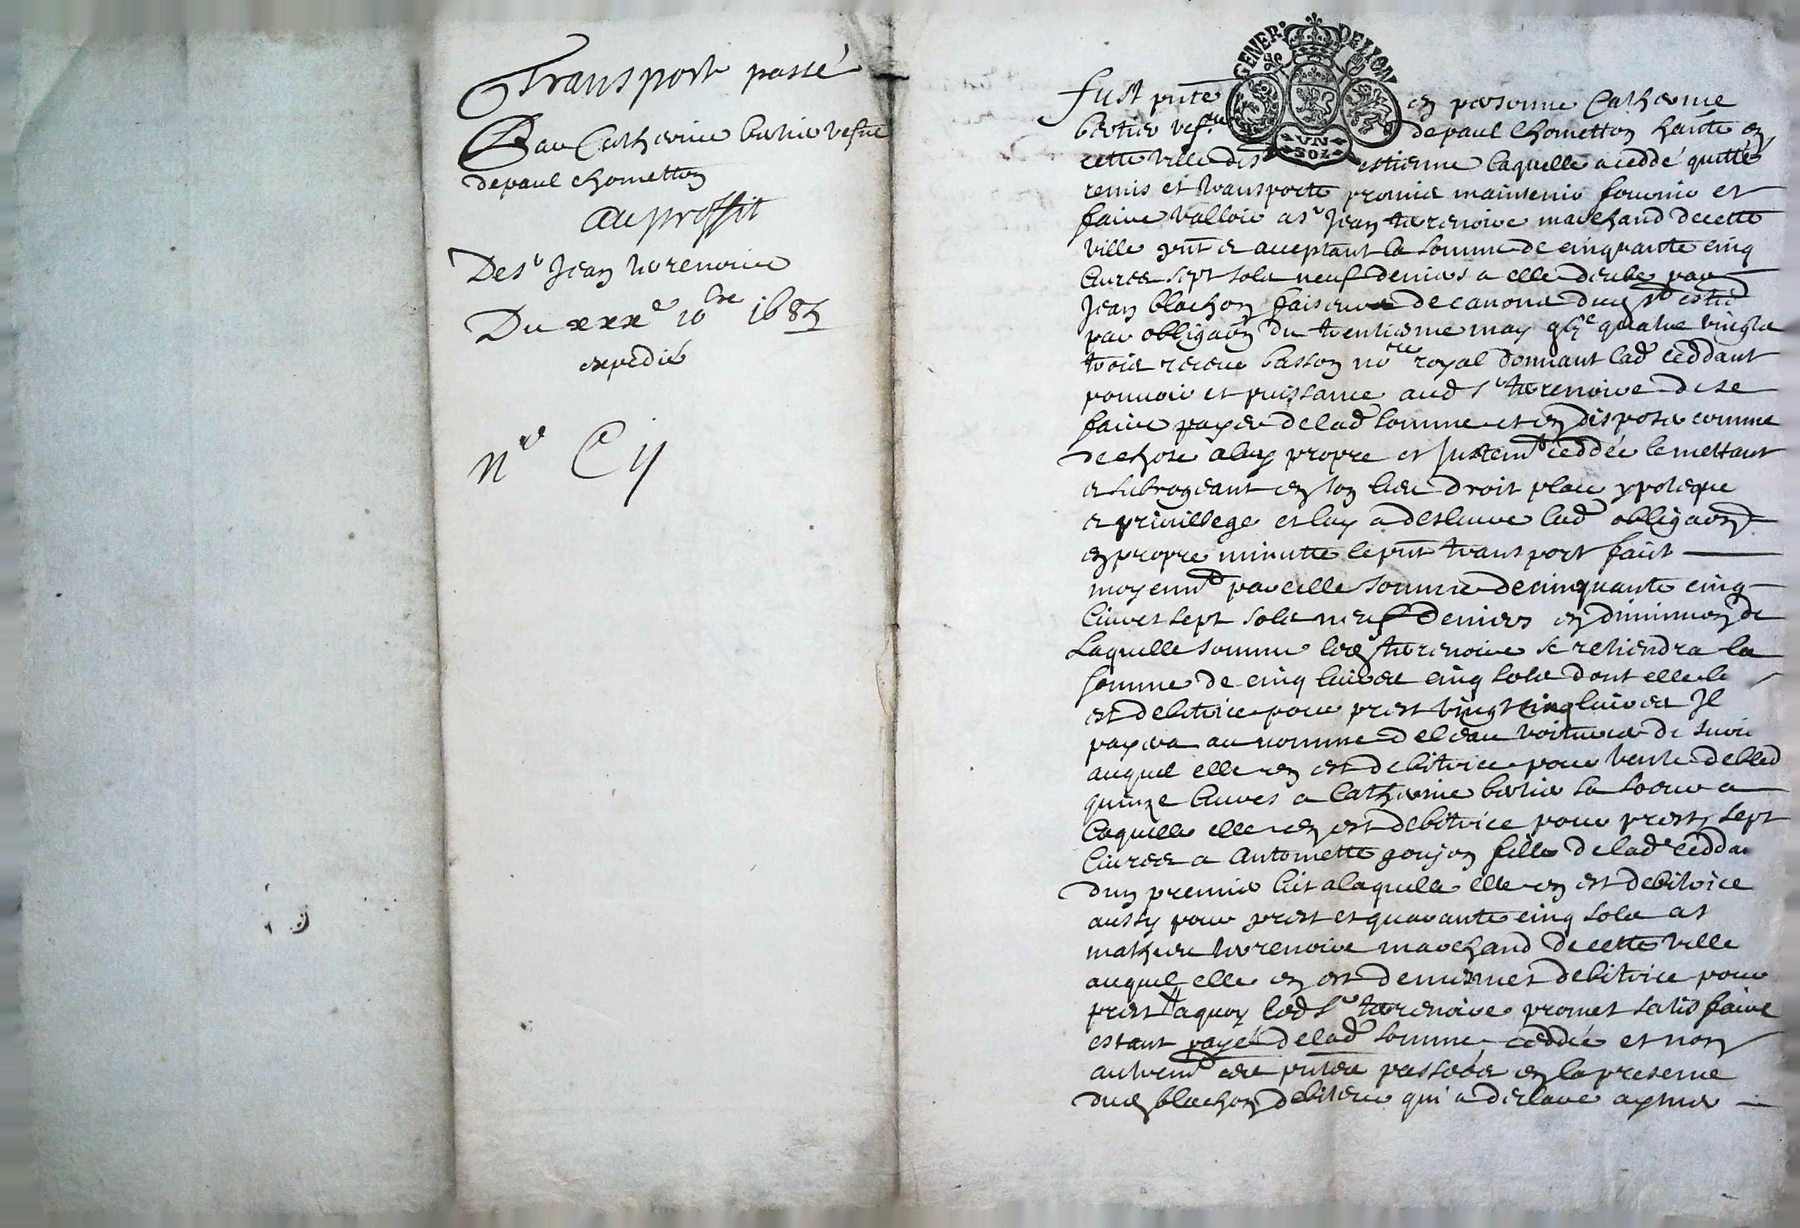 Transport passé
Par Catherine bertier vefve
de paul chometton
au proffit
De sr Jean terrenoire
Du xxxe 10bre 1685
expedié
nre C ij
GENER. DE LION
UN
SOL
fust pnte en personne Catherine
bertier vefve de paul chometton habte en
cette ville de st estienne laquelle a ceddé quitté
remis et transporté promis maintenir fournir et
faire valloir a sr Jean terrenoire marchand de cette
ville pnt et acceptant la somme de cinquante cinq
livres sept sols neuf deniers a elle deube par
Jean blachon faiseur de canons dud st estie
par obligaon du trentiesme may gbjc quatre vingts
trois receue basson nore royal donnant lad ceddant
pouvoir et puissance aud sr terrenoire de se
faire payer de lad somme et en disposer comme
de chose a luy propre et justemt ceddée le mettant
et subrogeant en son lieu droit place ypoteque
et privillege et luy a deslivré lad obligaon
en propre minutte le pnt transport fait
moyennt pareille somme de cinquante cinq
livres sept sols neuf deniers en diminuon de
laquelle somme led terrenoire se retiendra la
somme de cinq livres cinq sols dont elle le
est debitrice pour prest vingt cinq livres Il
payera au nomme voiturier de
auquel elle en est debitrice pour vente de bled
quinze livres a Catherine bertier sa soeur a
laquelle elle en est debitrice pour prest sept
livres a Antoinette goujon fille de lad cedda
dun premier lit a laquelle elle en est debitrice
aussy pour prest et quarante cinq sols a sr
mathieu terrenoire marchand de cette ville
auquel elle en est de mesmes debitrice pour
prest a quoy led sr terrenoire promet satisfaire
estant payé de lad somme ceddée et non
autremt ces pntes passées en la presence
dud blachon debiteur qui a declaré aymer